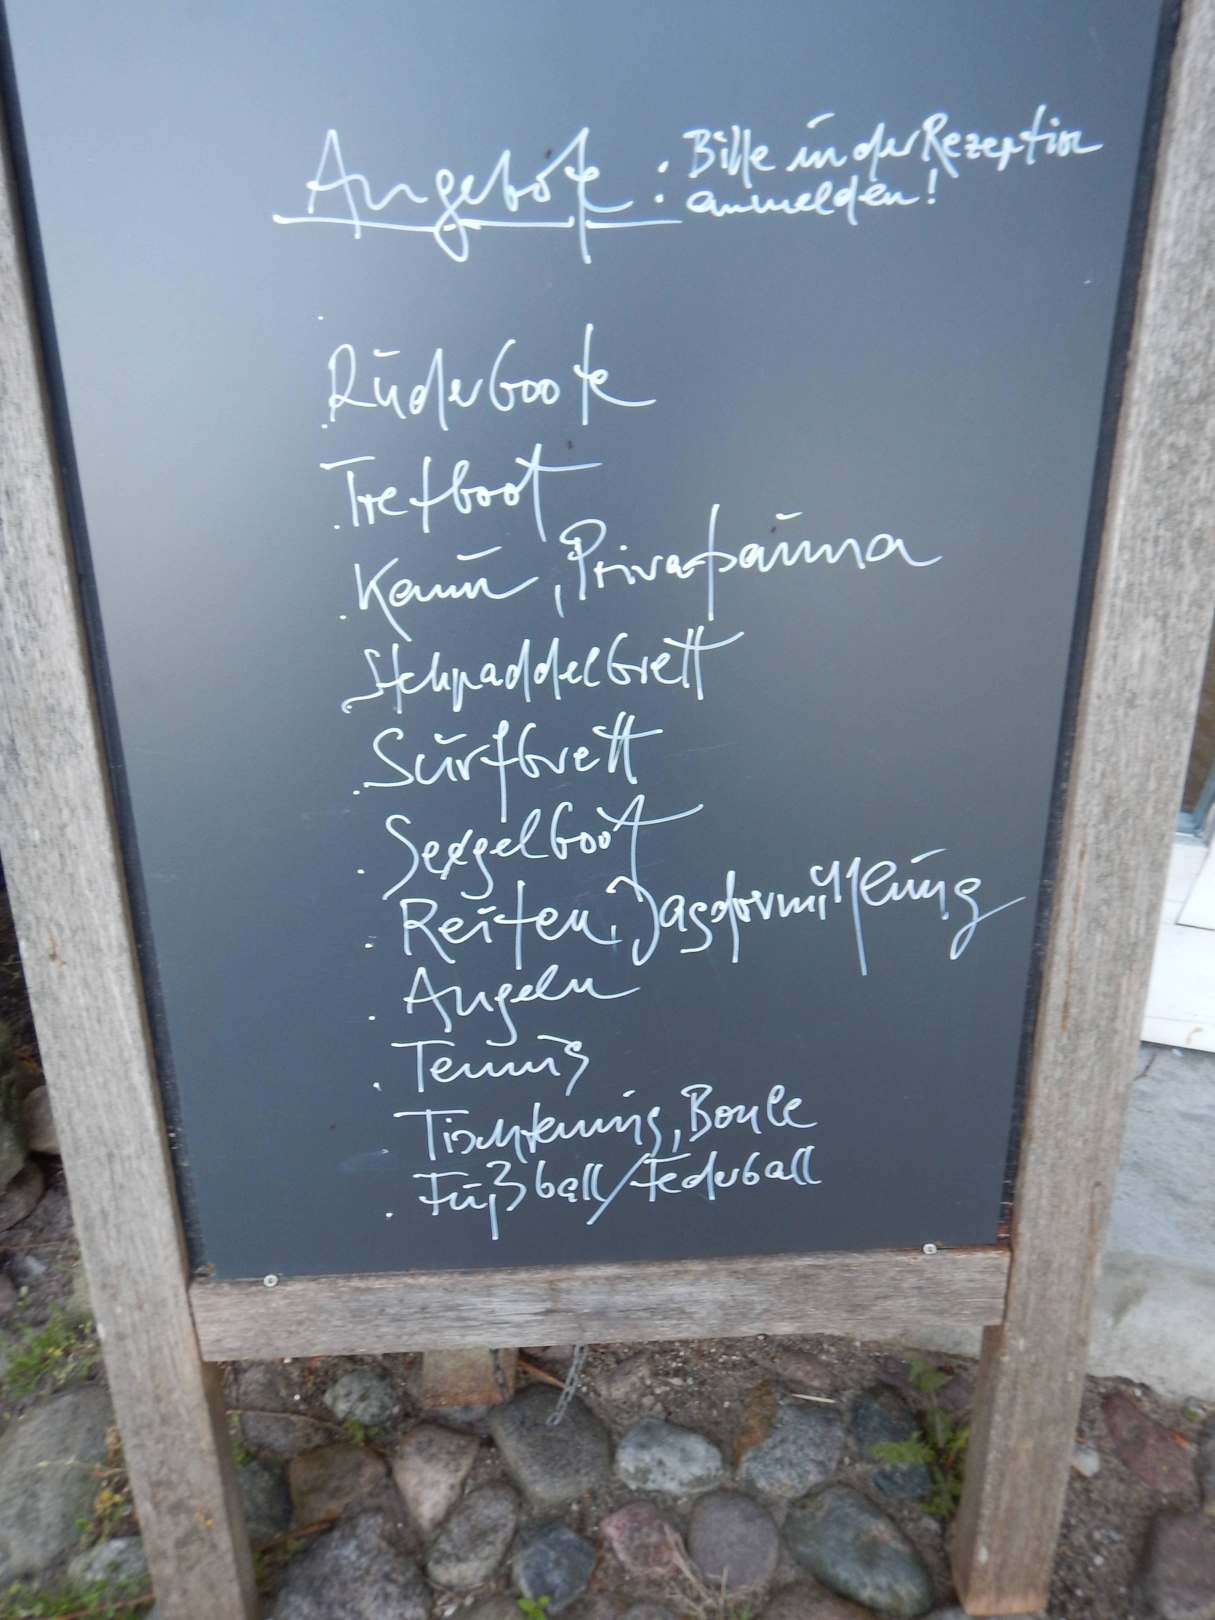 Angebote : Bitte in der Rezeption
anmelden!
Ruderboote
Tretboot
Kanu, Privatsauna
Stehpaddelbrett
Surfbrett
Segelboot
Reiten, Jagdvermittlung
Angeln
Tennis
Tischtennis, Boule
Fußball/Federball